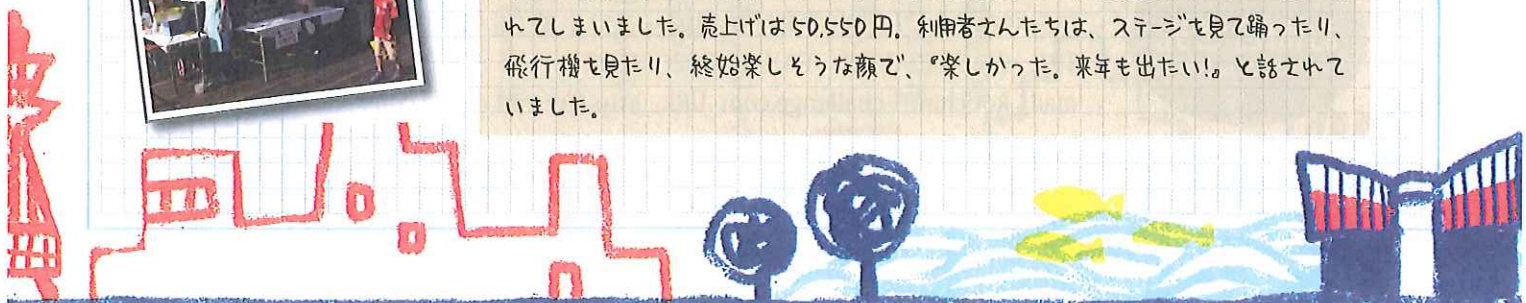 れてしまいました。売上げは50,550円。利用者さんたちは、ステージを見て踊ったり、
飛行機を見たり、終始楽しそうな顔で、『楽しかった。来年も出たい!』と話されて
いました。